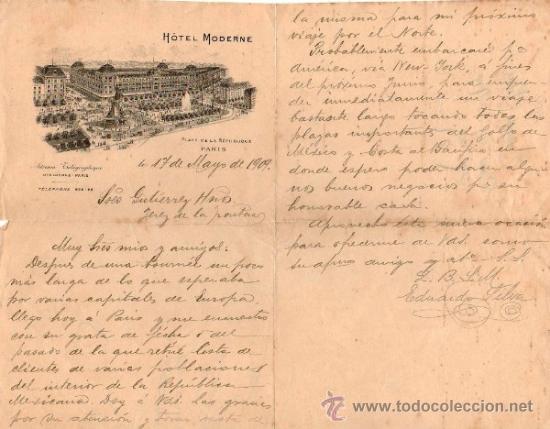 HÔTEL MODERNE
PLACE DE LA RÉPUBLIQUE
PARIS
Adresse Télégraphique
PARIS
TÉLÉPHONE
le 17 de Mayo de 1909.
Sres Gutierrez Hnos
Jerez de la
Muy Sres mios y amigos:
Despues de una tournée un poco
más larga de lo que esperaba
por varias capitales de Europa
llego hoy á Paris y me encuentro
con su grata de fécha 6 del
pasado de la que retiré lista de
clientes de varias poblaciones
del interior de la República
Mexicana. Doy á Vds. las gracias
por su atención y
la misma para mi próximo
viaje por el Norte.
Probablemente embarcaré pa
América, via New-York, á fines
del próximo Junio, para
der inmediatamente un viaje
bastante largo tocando todas las
plazas importantes del Golfo de
México y Costa al Pacífico en
donde espero poder hacer algu
nos buenos negocios pa su
honorable casa.
Aprovecho esta nueva ocasión
para ofrecerme de Vds. como
su afmo amigo y ato S. S.
Q. B. S. M.
Eduardo Silva
todocoleccion
www.todocoleccion.net